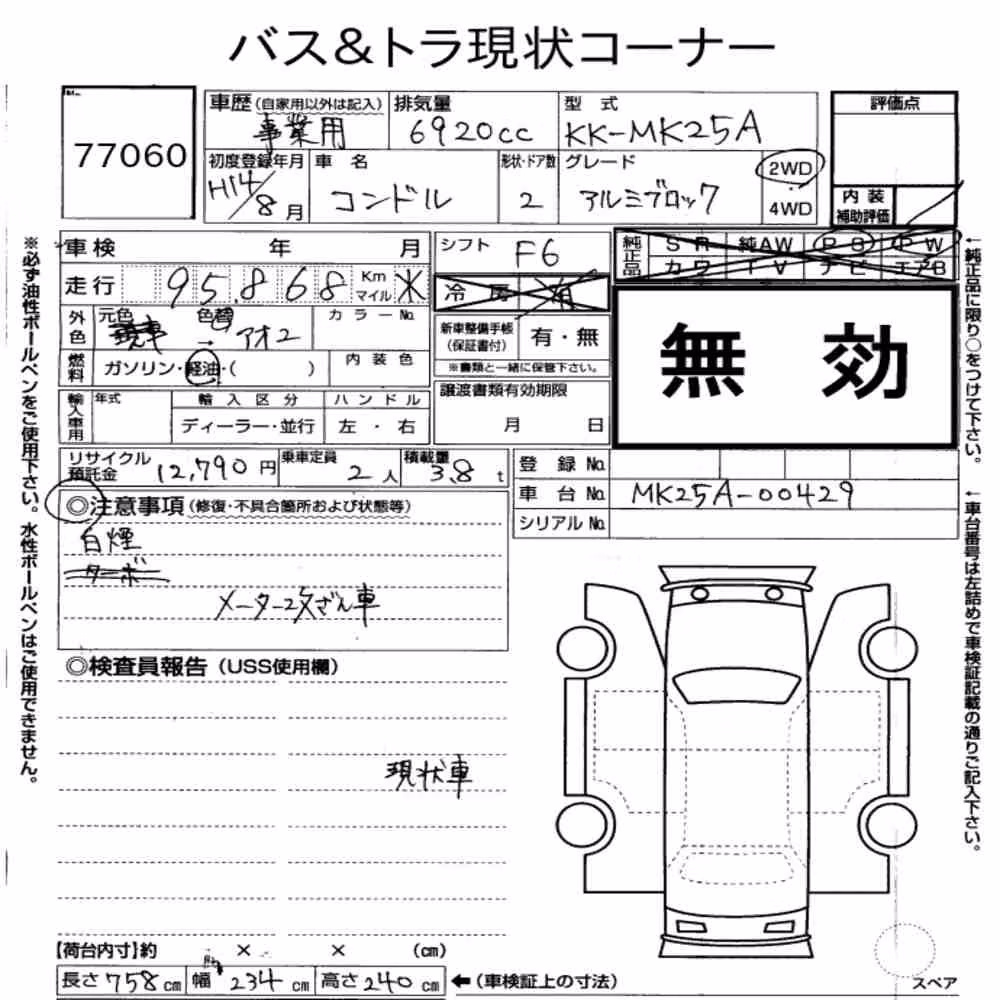 バス&トラ現状コーナー
77060
車歴(自家用以外は記入)
事業用
排気量
6920cc
型式
KK-MK25A
評価点
初度登録年月
H14/8月
車名
コンドル
形状・ドア数
2
グレード
アルミブロック
2WD
4WD
内装
補助評価
車検 年 月
シフト F6
純正品
SR 純AW PS PW
カワ TV ナビ エアB
走行 95,868 Km マイル
冷房
外色
元色 色替 カラーNo.
→ アオ2
新車整備手帳
(保証書付)
有・無
※書類と一緒に保管下さい。
無効
燃料
ガソリン・軽油・( )
内装色
輸入車用
年式 輸入区分 ハンドル
ディーラー・並行 左・右
譲渡書類有効期限
月 日
リサイクル預託金 12,790円
乗車定員 2人
積載量 3.8t
登録No.
車台No. MK25A-00429
シリアルNo.
◎注意事項(修復・不具合箇所および状態等)
白煙
ターボ
メーター改ざん車
◎検査員報告(USS使用欄)
現状車
【荷台内寸】約 × × (cm)
長さ758cm 幅234cm 高さ240cm ←(車検証上の寸法)
スペア
※必ず油性ボールペンをご使用下さい。水性ボールペンはご使用できません。
←純正品に限り○をつけて下さい。
←車台番号は左詰めで車検証記載の通りご記入下さい。